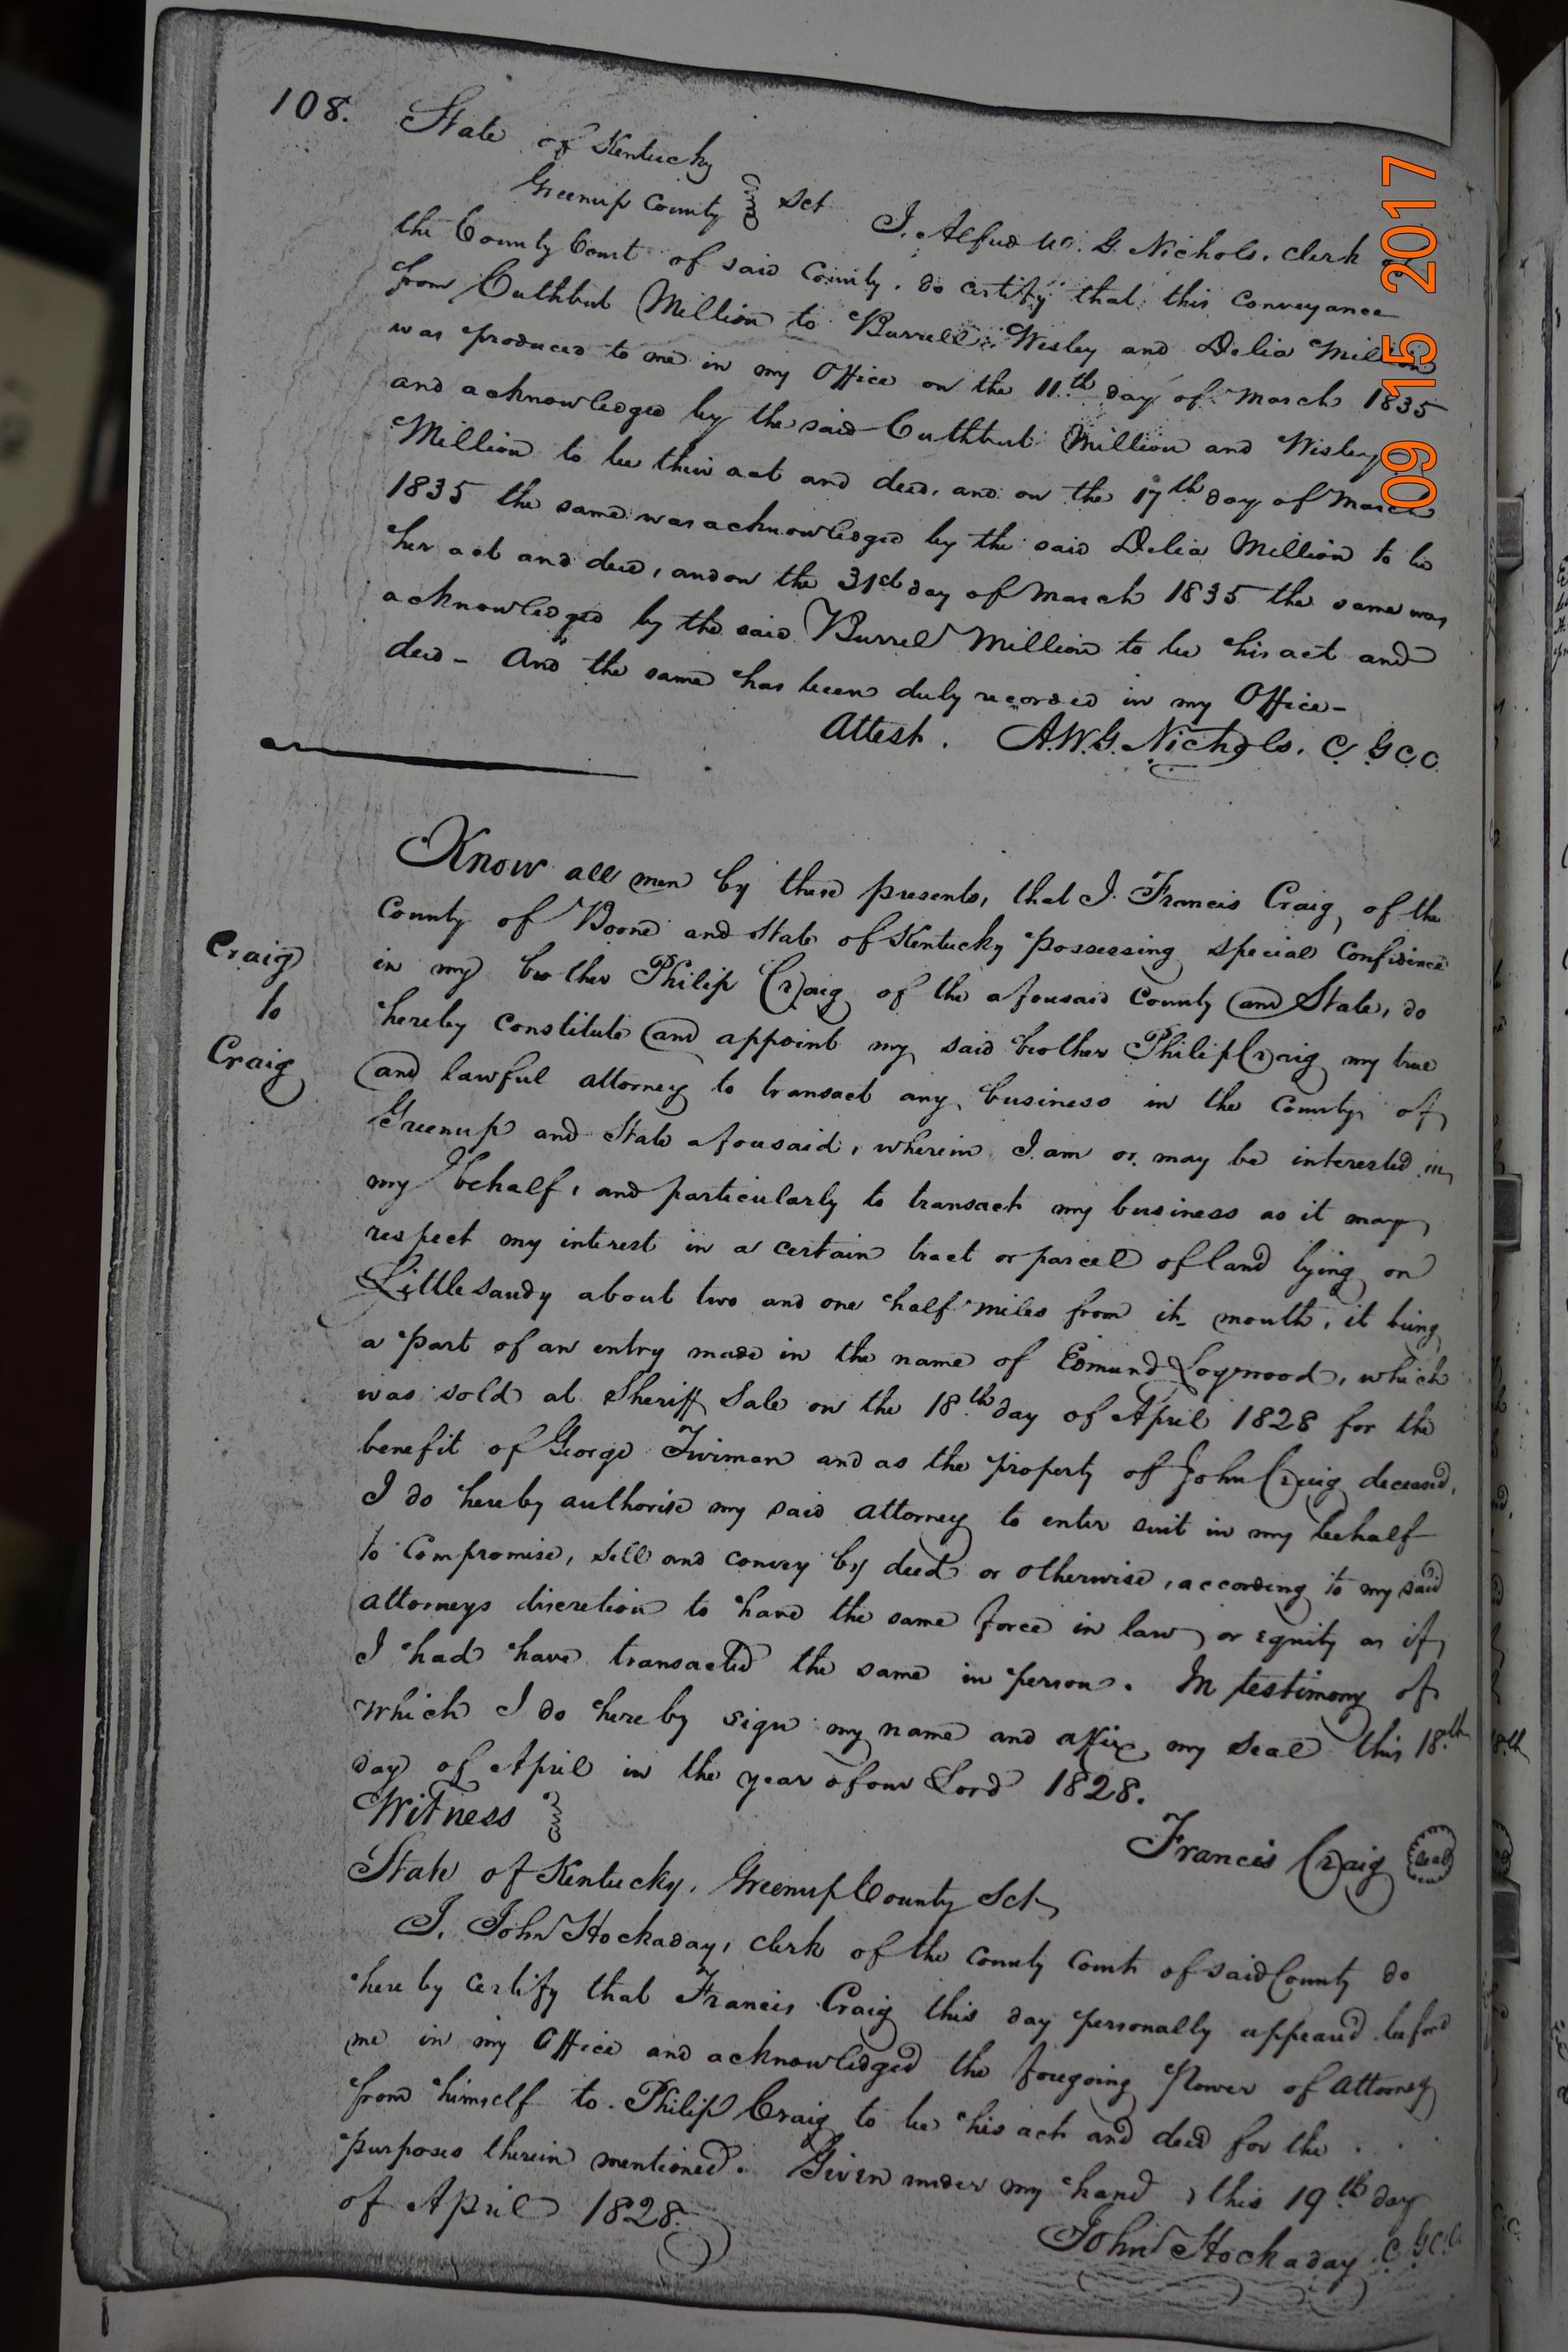 108.
State of Kentucky
Greenup County Sct
I. Alfred W. G. Nichols, clerk of
the County Court of said County, do certify that this conveyance
from Cuthbert Million to Burrell, Wesley and Delia Million
was produced to me in my Office on the 11th day of March 1835
and acknowledged by the said Cuthbert Million and Wesley
Million to be their act and deed, and on the 17th day of March
1835 the same was acknowledged by the said Delia Million to be
her act and deed, and on the 31st day of March 1835 the same was
acknowledged by the said Burrel Million to be his act and
deed - And the same has been duly recorded in my Office -
Attest. A.W.G. Nichols. C. G C C.
Know all men by these presents, that I. Francis Craig, of the
County of Boone and State of Kentucky possessing special confidence
in my brother Philip Craig of the aforesaid County and State, do
hereby constitute and appoint my said brother Philip Craig my true
and lawful attorney to transact any business in the County of
Greenup and State aforesaid, wherein I am or may be interested in
my behalf, and particularly to transact my business as it may
respect my interest in a certain tract or parcel of land lying on
Little sandy about two and one half miles from its mouth, it being
a part of an entry made in the name of Edmund which
was sold at Sheriff Sale on the 18th day of April 1828 for the
benefit of George Twiman and as the property of John Craig deceased,
I do hereby authorise my said attorney to enter suit in my behalf
to Compromise, sell and convey by deed or otherwise, according to my said
attorneys discretion to have the same force in law or equity as if
I had have transacted the same in person. In testimony of
which I do hereby sign my name and affix my seal this 18th
day of April in the year of our Lord 1828.
Witness
Francis Craig Seal
State of Kentucky, Greenup County Sct
I. John Hockaday, clerk of the County Court of said County do
hereby certify that Francis Craig this day personally appeard before
me in my Office and acknowledged the foregoing Power of Attorney
from himself to Philip Craig to be his act and deed for the . . .
purposes therein mentioned. Given under my hand, this 19th day
of April 1828.
John Hockaday C. G C C.
Craig
to
Craig
09 15 2017